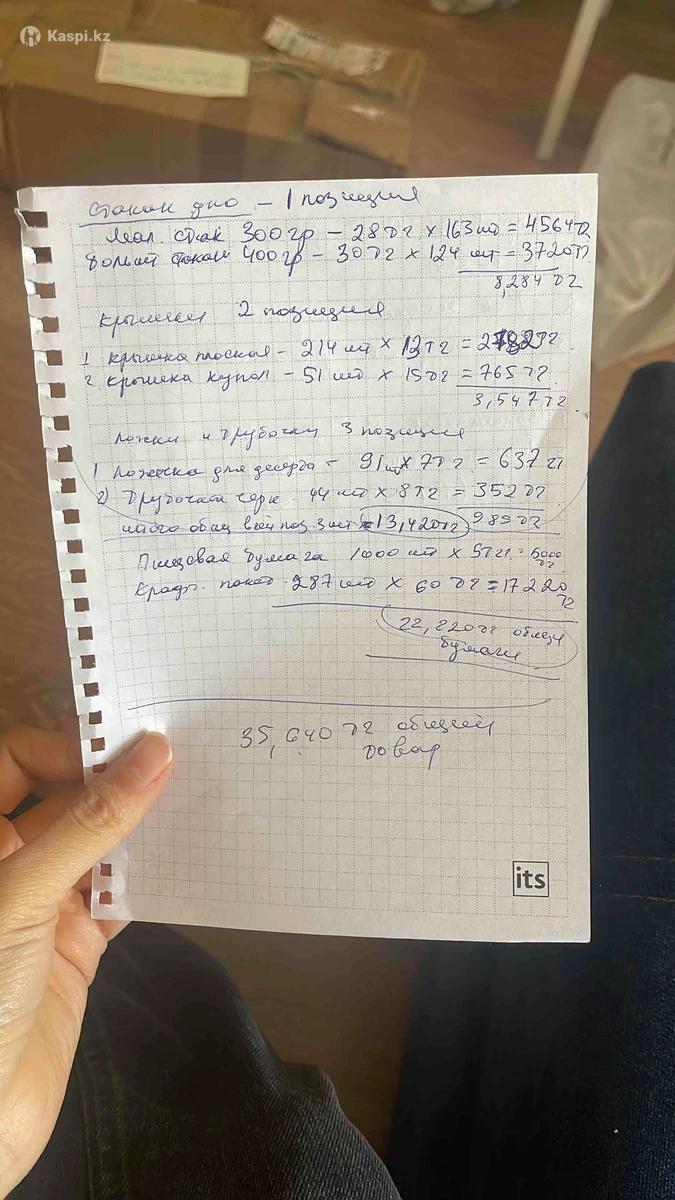 Kaspi.kz
Стакан дно – 1 позиция
Мал. стак 300гр – 28тг × 163шт = 4564тг
Большой стакан 400гр – 30тг × 124 шт = 3720тг
8,284тг
Крышки 2 позиция
1 крышка плоская – 214 шт × 13тг = 2782тг
2. крышка купол – 51 шт × 15тг = 765тг
3,547тг
Ложки и трубочки 3 позиция
1) ложечка для десерта – 91шт × 7тг = 637тг
2) Трубочка черн 44шт × 8тг = 352тг
итого общ всей поз. 3шт 13,420тг 989тг
Пищевая бумага 1000 шт × 5тг = 5000тг
Крафт. пакет 287шт × 60тг = 17220тг
22,220тг общий
бумаги
35,640тг общий
товар
its